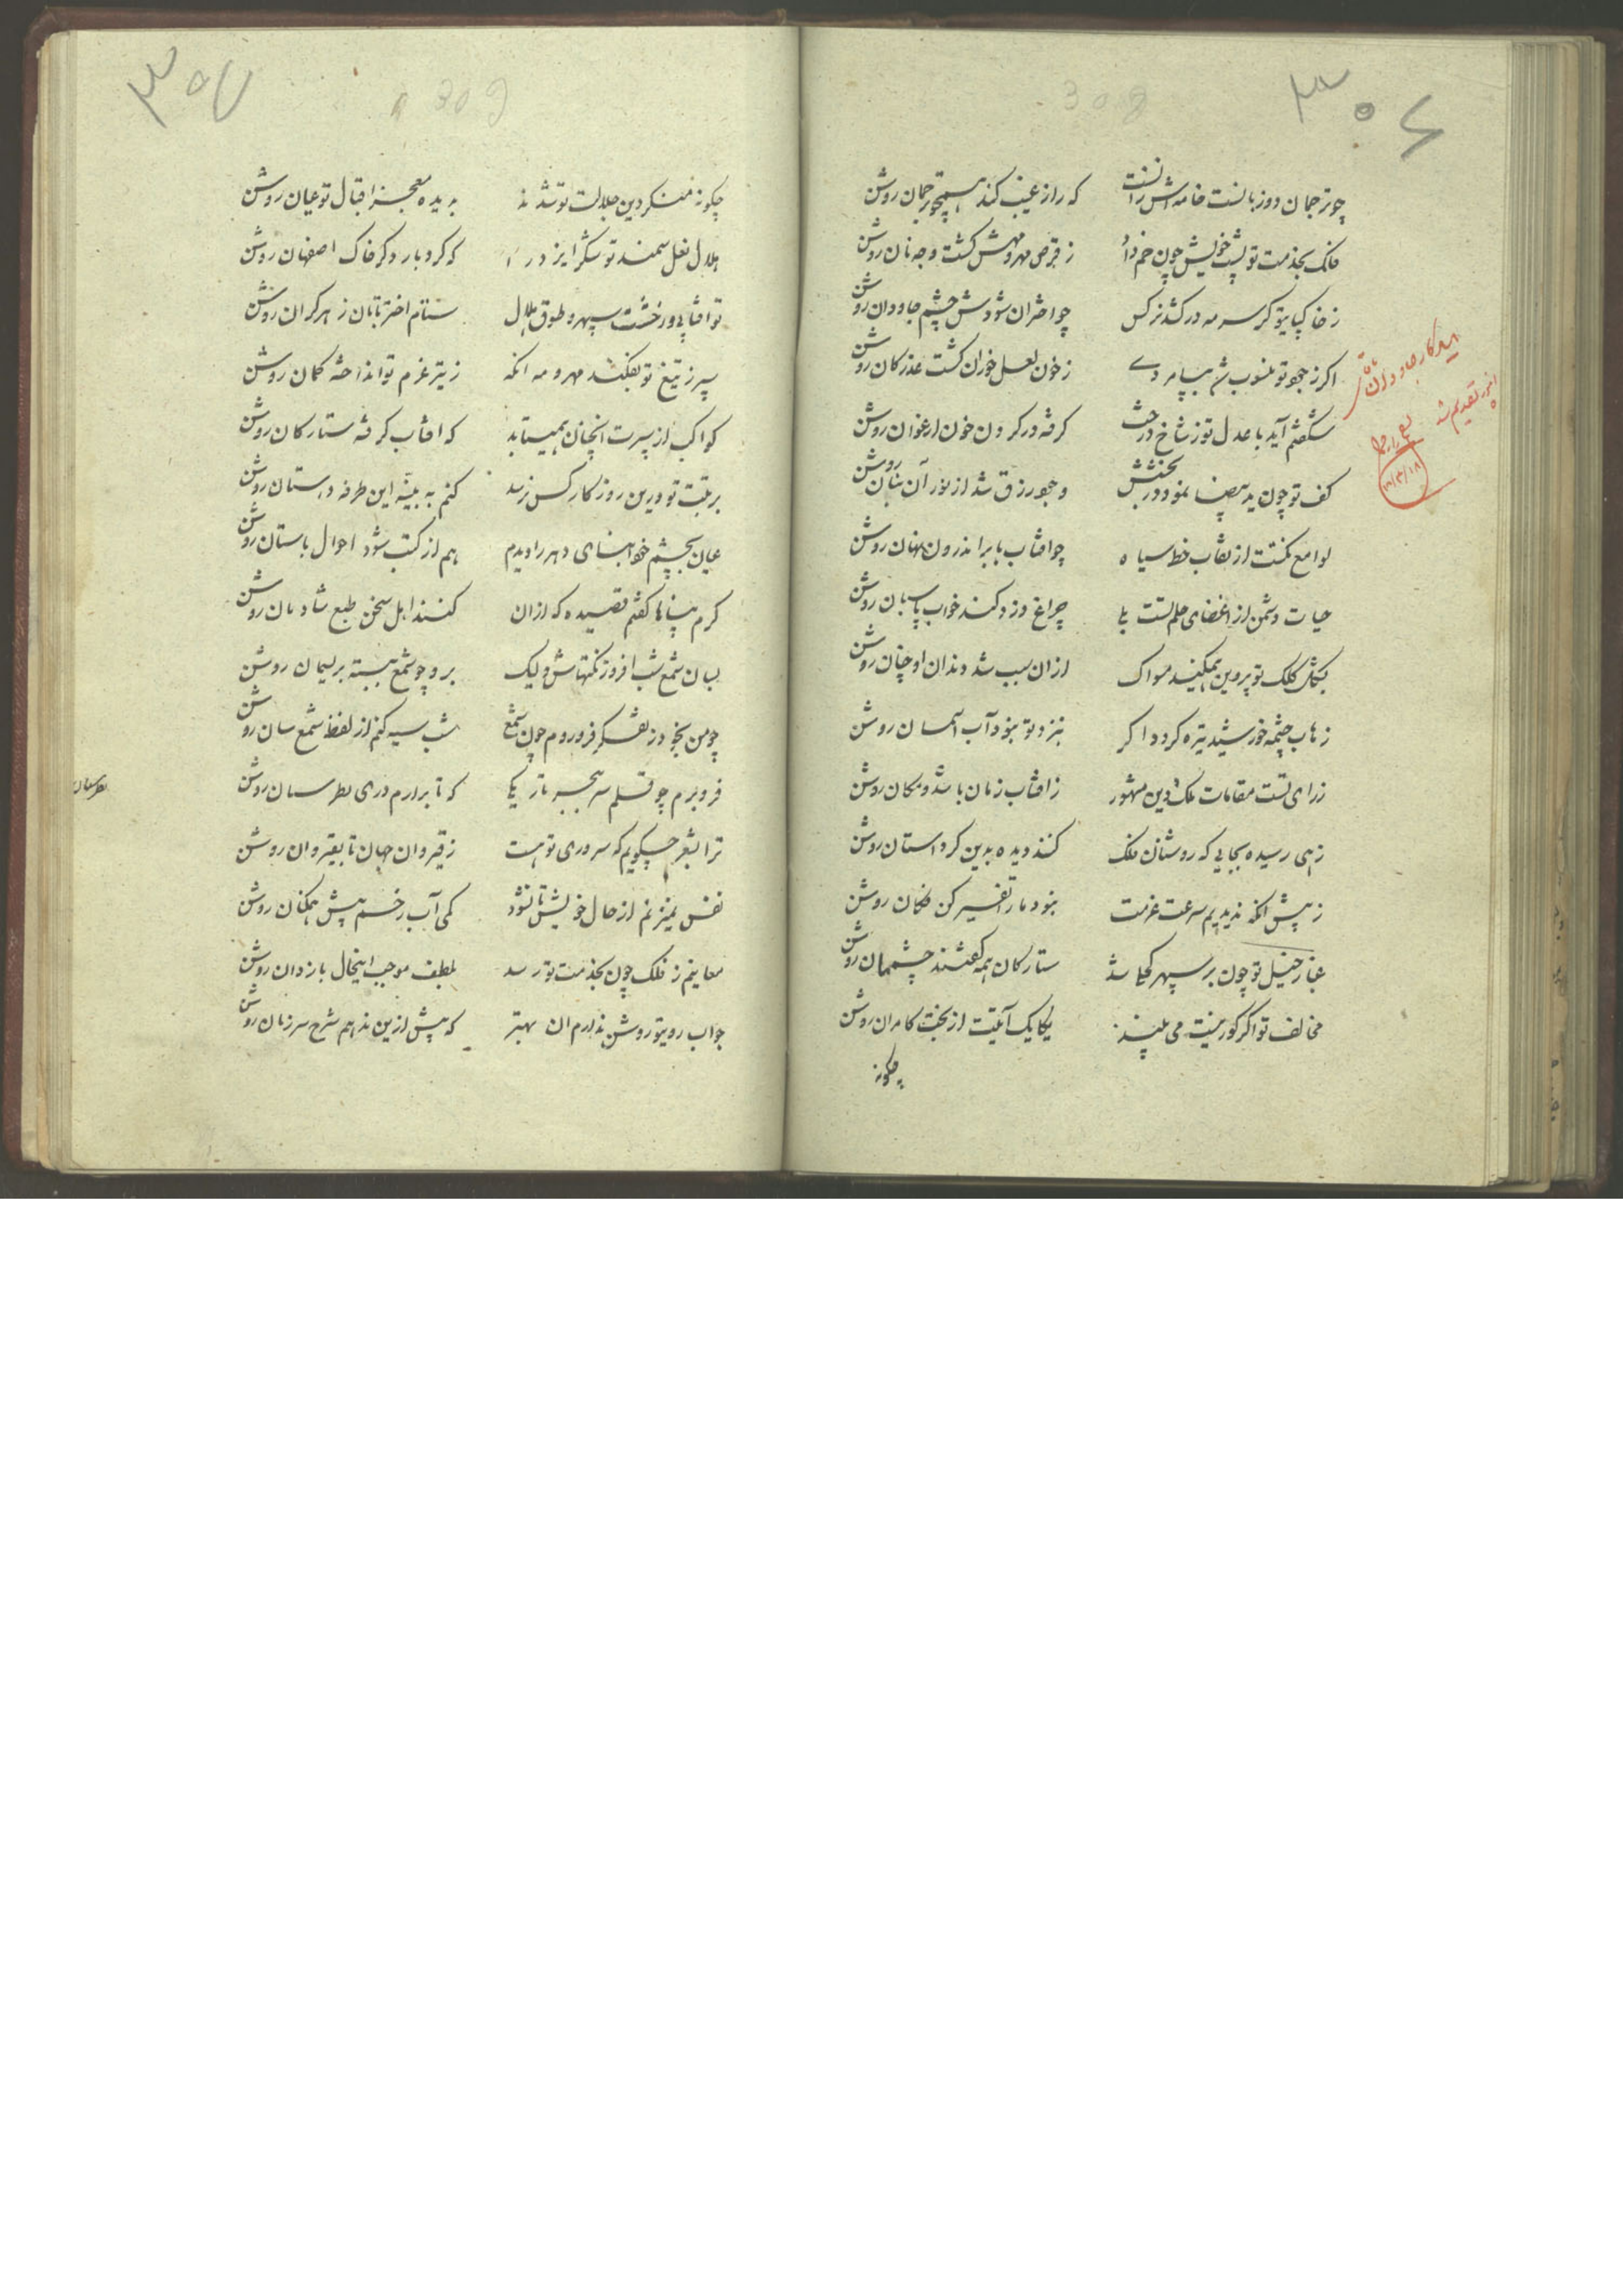 ۳۰۶
چو ترجمان دوزبانست خامه اش زانست که راز غیب کند همچو ترجمان روشن
فلک بخدمت تو پشت خویش چون خم داد ز قرص مهر و مهش کشت وجه نان روشن
ز خاکپای تو کر سرمه درکشد نرکس چو اختران شودش چشم جاودان روشن
اکر ز جود تو منسوب شد به پیامردی ز خون لعل خوران کشت عذر کان روشن
شکفتم آید با عدل تو ز شاخ درخت کرفته در کردن خون ارغوان روشن
کف تو چون ید بیضا نمود در بخشش وجوه رزق شد از نور آن بنان روشن
لوامع نکتت از نقاب خط سیاه چو افتاب بابر اندرون نهان روشن
حیات دشمن از اغضای حلم تست بلی چراغ دزد کند خواب پاسبان روشن
بنوک کلک تو پروین همیکند مسواک از ان سبب شد دندان او چنان روشن
زهاب چشمه خورشید تیره کردد اکر بنزد تو نبود آب آسمان روشن
ز رای تست مقامات ملک و دین مشهور ز افتاب زمان باشد و مکان روشن
زهی رسیده بجایی که روشنان فلک کنند دیده بدین کرد استان روشن
ز پیش انکه ندیدیم سرعت عزمت نبود ما را تفسیر کن فکان روشن
غبار خیل تو چون بر سپهر کحلی شد ستارکان همه کفتند چشممان روشن
مخالف تو اکر کور نیست می بیند یکایک آیتیت از بخت کامران روشن
چکونه
۳۰۵
چکونه منکر دین جلالت تو شد نه بدیده معجز اقبال تو عیان روشن
هلال نعل سمند تو شکر ایزد را که کرد بار دکر خاک اصفهان روشن
تو افتابی و رخشت سپهر و طوق هلال ستام اختر تابان ز هر کران روشن
سپر ز تیغ تو بفکند مهر و مه انکه ز تیر عزم تو انداخته کمان روشن
کواکب از سپرت انچنان همیتابد که افتاب کرفته ستارکان روشن
برتبت تو درین روزکار کس نرسد کنم به بینه این طرفه داستان روشن
عیان بچشم خود ابنای دهر را دیدم هم از کتب شود احوال باستان روشن
کرم پناها کفتم قصیده که از ان کنند اهل سخن طبع شادمان روشن
بسان شمع شب افروز نکتهاش و لیک برو چو شمع ببسته بریسمان روشن
چو من بخود ز تفکر فرو روم چون شمع شب سیه کنم از لفظ شمع سان روشن
فرو برم چو قلم سر ببحر تاریکی که تا برارم دری بطرسان روشن
ترا بشعر چکویم که سروری تو هست ز قیروان جهان تا بقیروان روشن
نفس نمیزنم از حال خویش تا نشود کمی آب رخم پیش همکنان روشن
معاینم ز فلک چون بخدمت تو رسد بلطف موجب اینحال بازدان روشن
جواب روبتو روشن ندارم ان بهتر که پیش ازین ندهم شرح سر زبان روشن